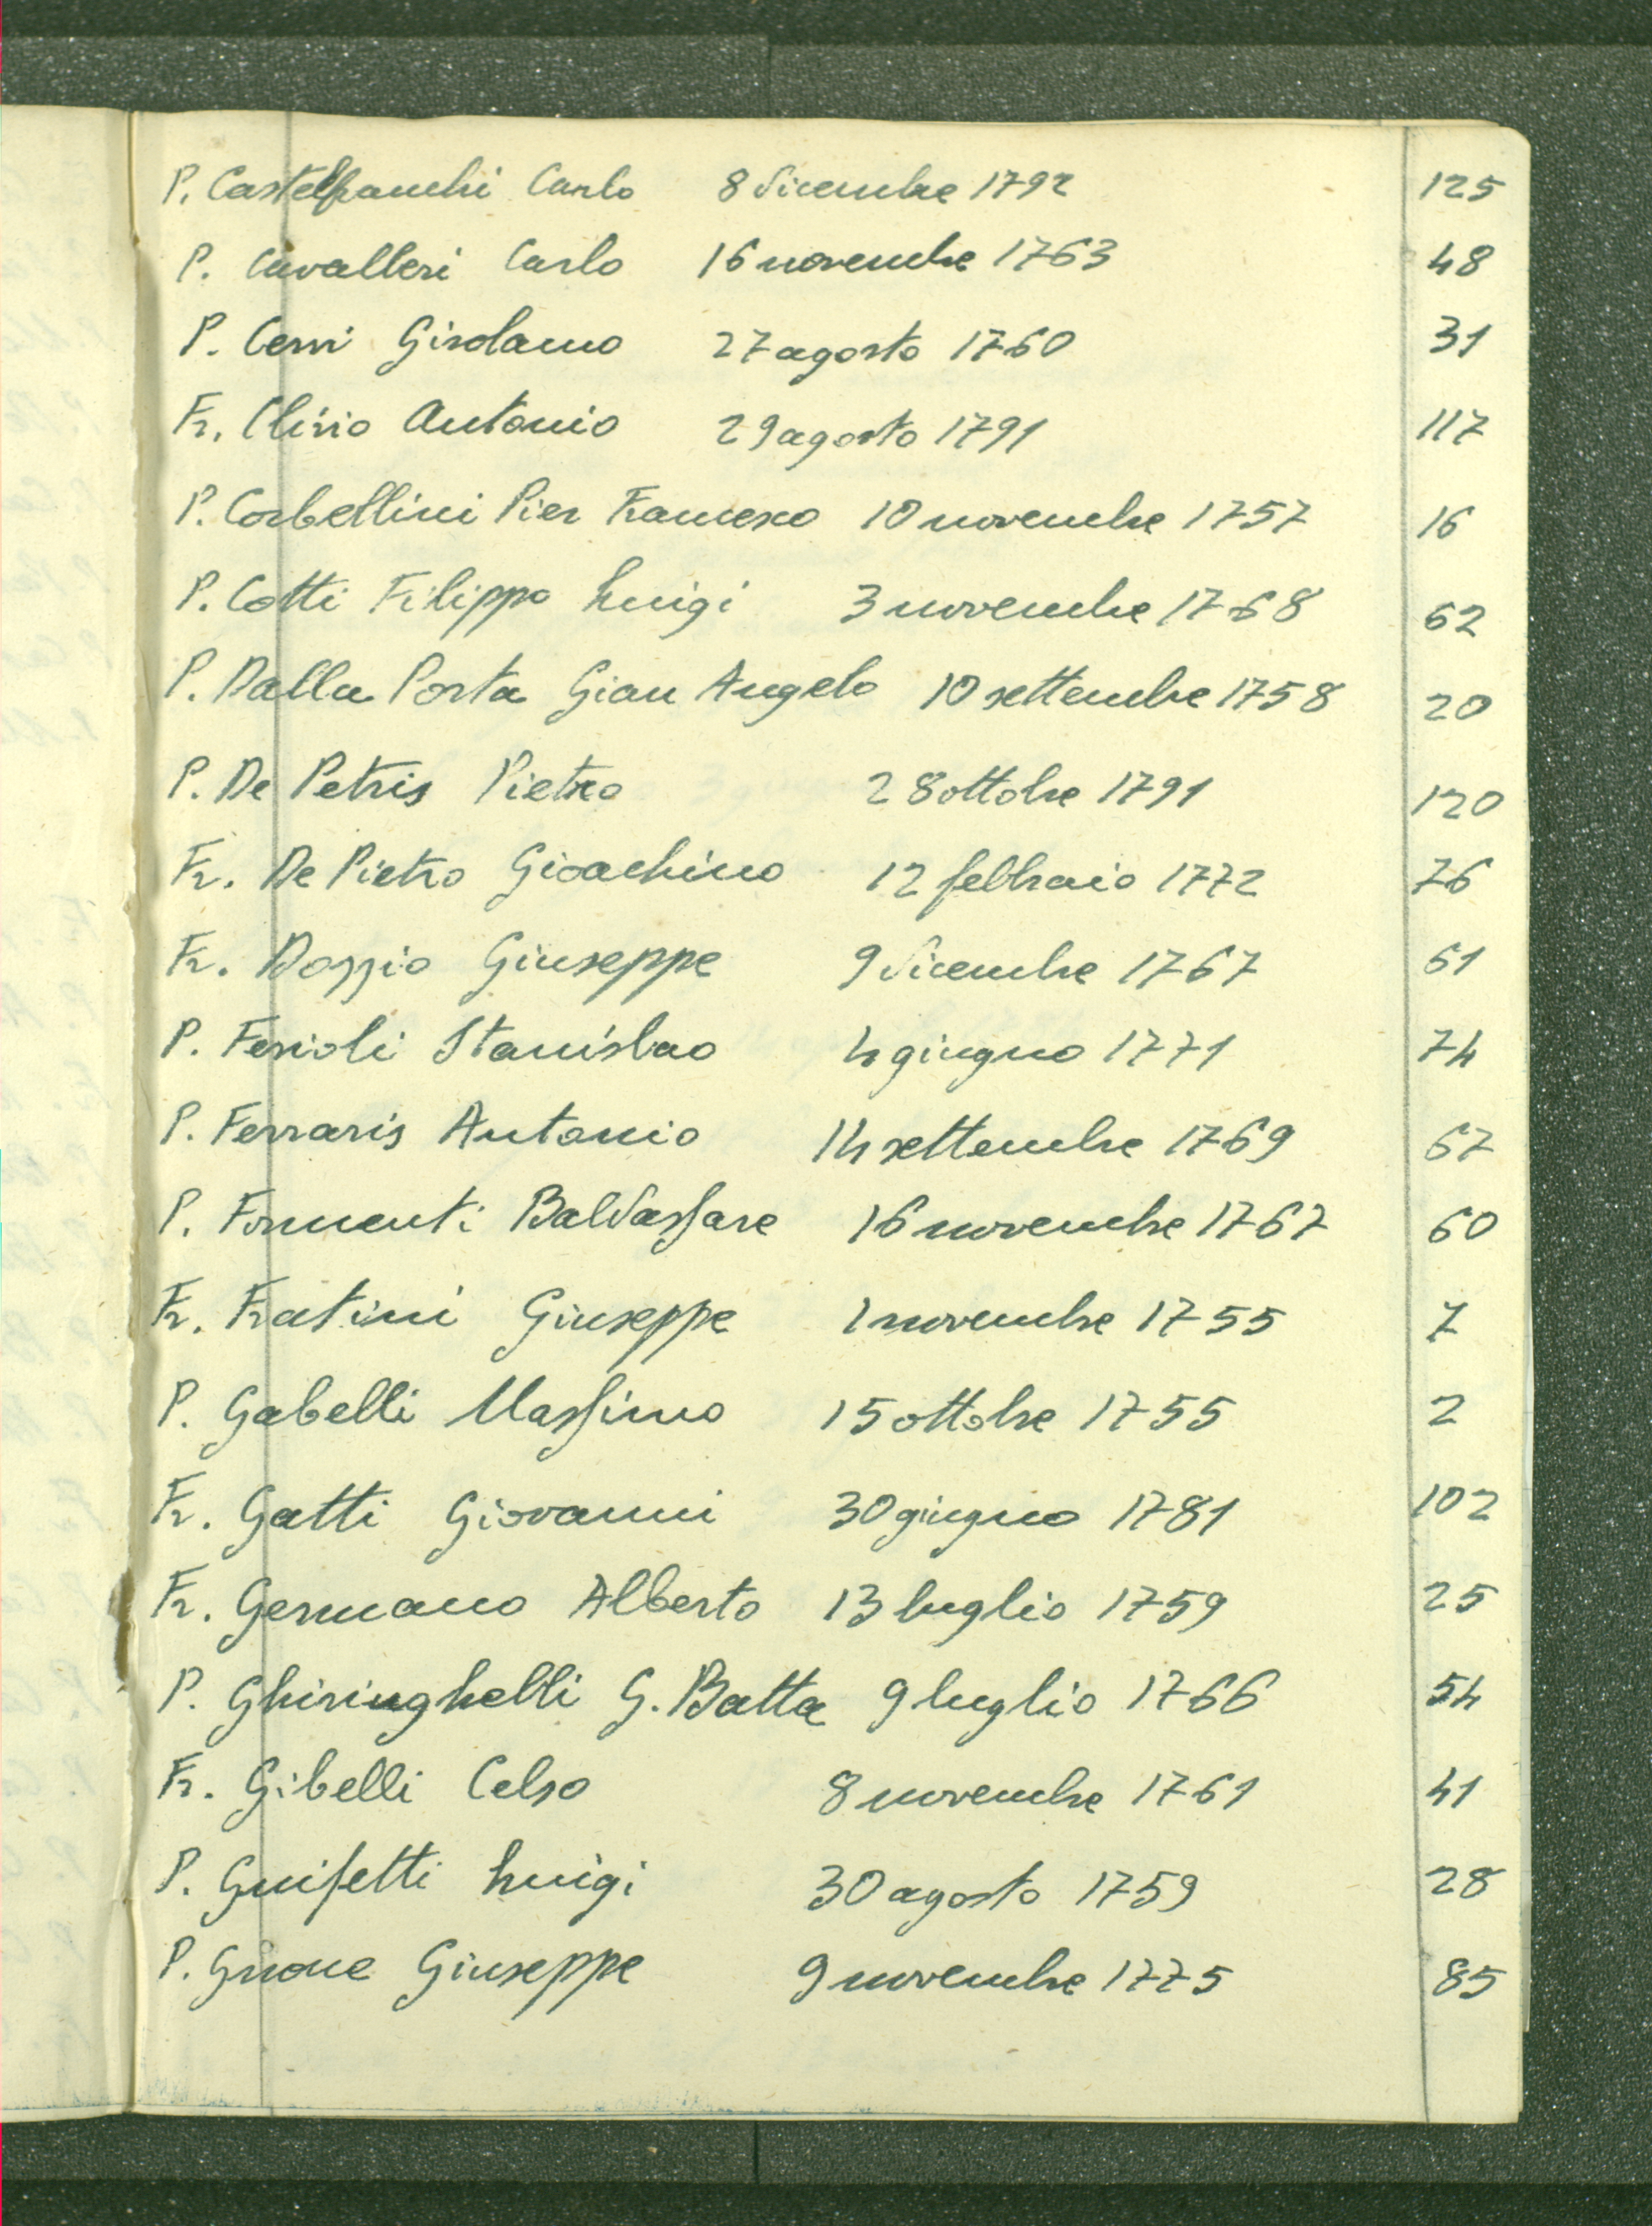 P. Castelfranchi Carlo 8 dicembre 1792 125
P. Cavalleri Carlo 16 novembre 1763 48
P. Cerri Girolamo 27 agosto 1760 31
Fr. Clivio Antonio 29 agosto 1791 117
P. Corbellini Pier Francesco 10 novembre 1757 16
P. Cotti Filippo Luigi 3 novembre 1768 62
P. Dalla Porta Gian Angelo 10 settembre 1758 20
P. De Petris Pietro 28 ottobre 1791 120
Fr. De Pietro Gioachino 12 febbraio 1772 76
Fr. Dozzio Giuseppe 9 dicembre 1767 61
P. Ferioli Stanislao 4 giugno 1771 74
P. Ferraris Antonio 14 settembre 1769 67
P. Formenti Baldassare 16 novembre 1767 60
Fr. Fratini Giuseppe 1 novembre 1755 7
P. Gabelli Massimo 15 ottobre 1755 2
Fr. Gatti Giovanni 30 giugno 1781 102
Fr. Germano Alberto 13 luglio 1759 25
P. Ghiringhelli G. Batta 9 luglio 1766 54
Fr. Gibelli Celso 8 novembre 1761 41
P. Luigi 30 agosto 1759 28
P. Giuseppe 9 novembre 1775 85